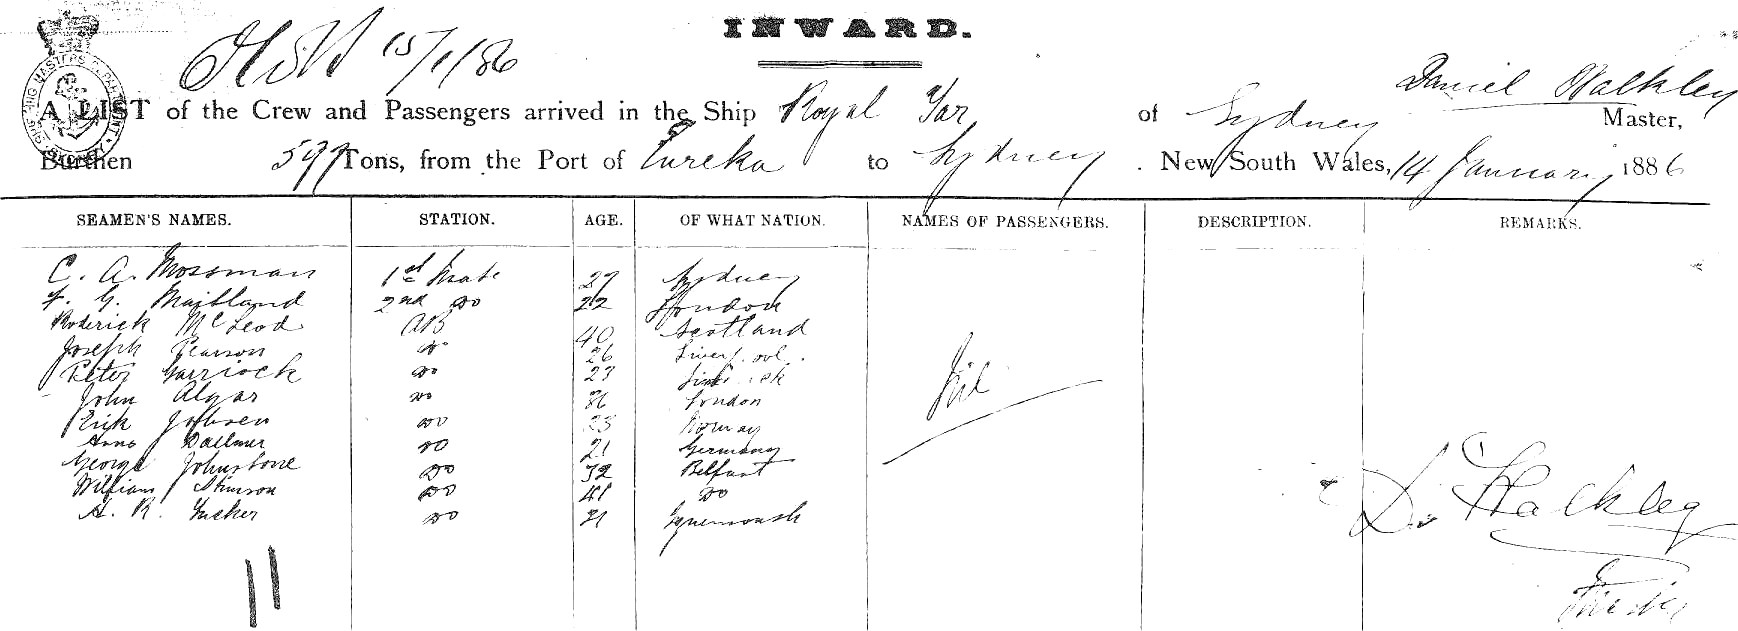 INWARD.
15/1/86
Daniel Walkley
A LIST of the Crew and Passengers arrived in the Ship Royal Tar of Sydney Master,
Burthen 599 Tons, from the Port of Eureka to Sydney . New South Wales, 14 January 1886
SEAMEN'S NAMES. STATION. AGE. OF WHAT NATION. NAMES OF PASSENGERS. DESCRIPTION. REMARKS.
C. A. Mossman 1st Mate 27 Sydney
F. G. Maitland 2nd Do 22 London
Roderick McLeod AB 40 Scotland
Joseph Pearson Do 26 Liverpool.
Peter Garriock Do 23
John Algar Do London
Erik Do 23 Norway
Dallmer Do 21 Germany
George Johnstone Do 32 Belfast
William Stimson Do 41 Do
A. R. Tucker Do 21
Nil
11
D. Walkley